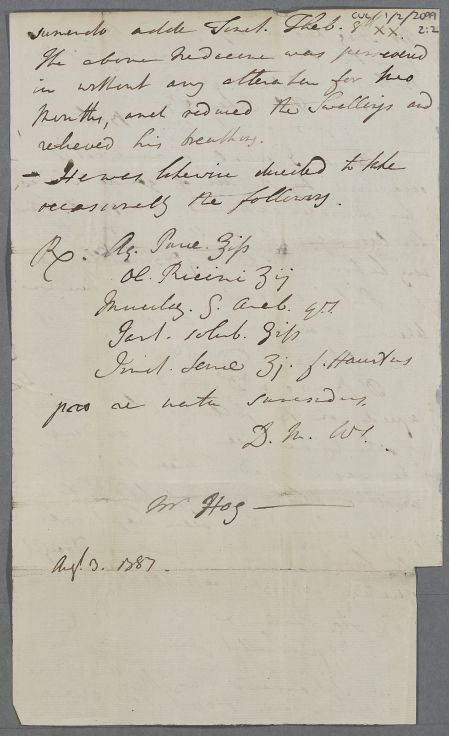 CUL/1/2/2099
2:2
sumendo adde Tinct. Theb. gtt XX.
The above Medecine was persevered
in without any alteration for two
Months, and reduced the Swellings and
relieved his breathing.
- He was likewise directed to take
occasionally the following.
Rx. Aq. Purae ℥iss
Ol. Ricini ʒij
Mucilag. G. Arab. q.s.
Tart. solub. ʒiss
Tinct. Senae ʒj. f. Haustus
pro re nata sumendus.
D. M. Ws.
Mr Hog
Augt. 3. 1787.